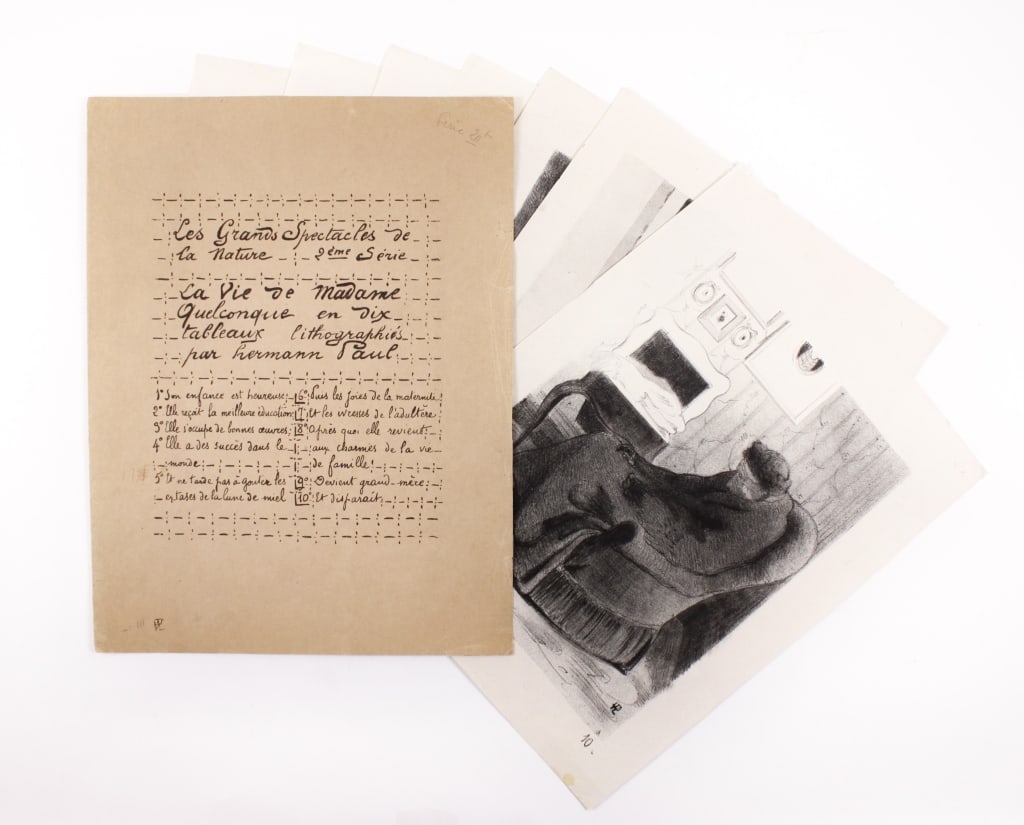 Série 2e
Les Grands Spectacles de
la Nature 2ème Série
La Vie de Madame
Quelconque en dix
tableaux lithographiés
par hermann Paul.
1° Son enfance est heureuse;
2° Elle reçoit la meilleure éducation;
3° Elle s'occupe de bonnes œuvres;
4° Elle a des succès dans le
monde
5° Et ne tarde pas à goûter les
extases de la lune de miel
6° Puis les joies de la maternité
7° Et les ivresses de l'adultère.
8° Après quoi elle revient
aux charmes de la vie
de famille!
9° Devient grand-mère;
10° Et disparait.
HP
HP
10